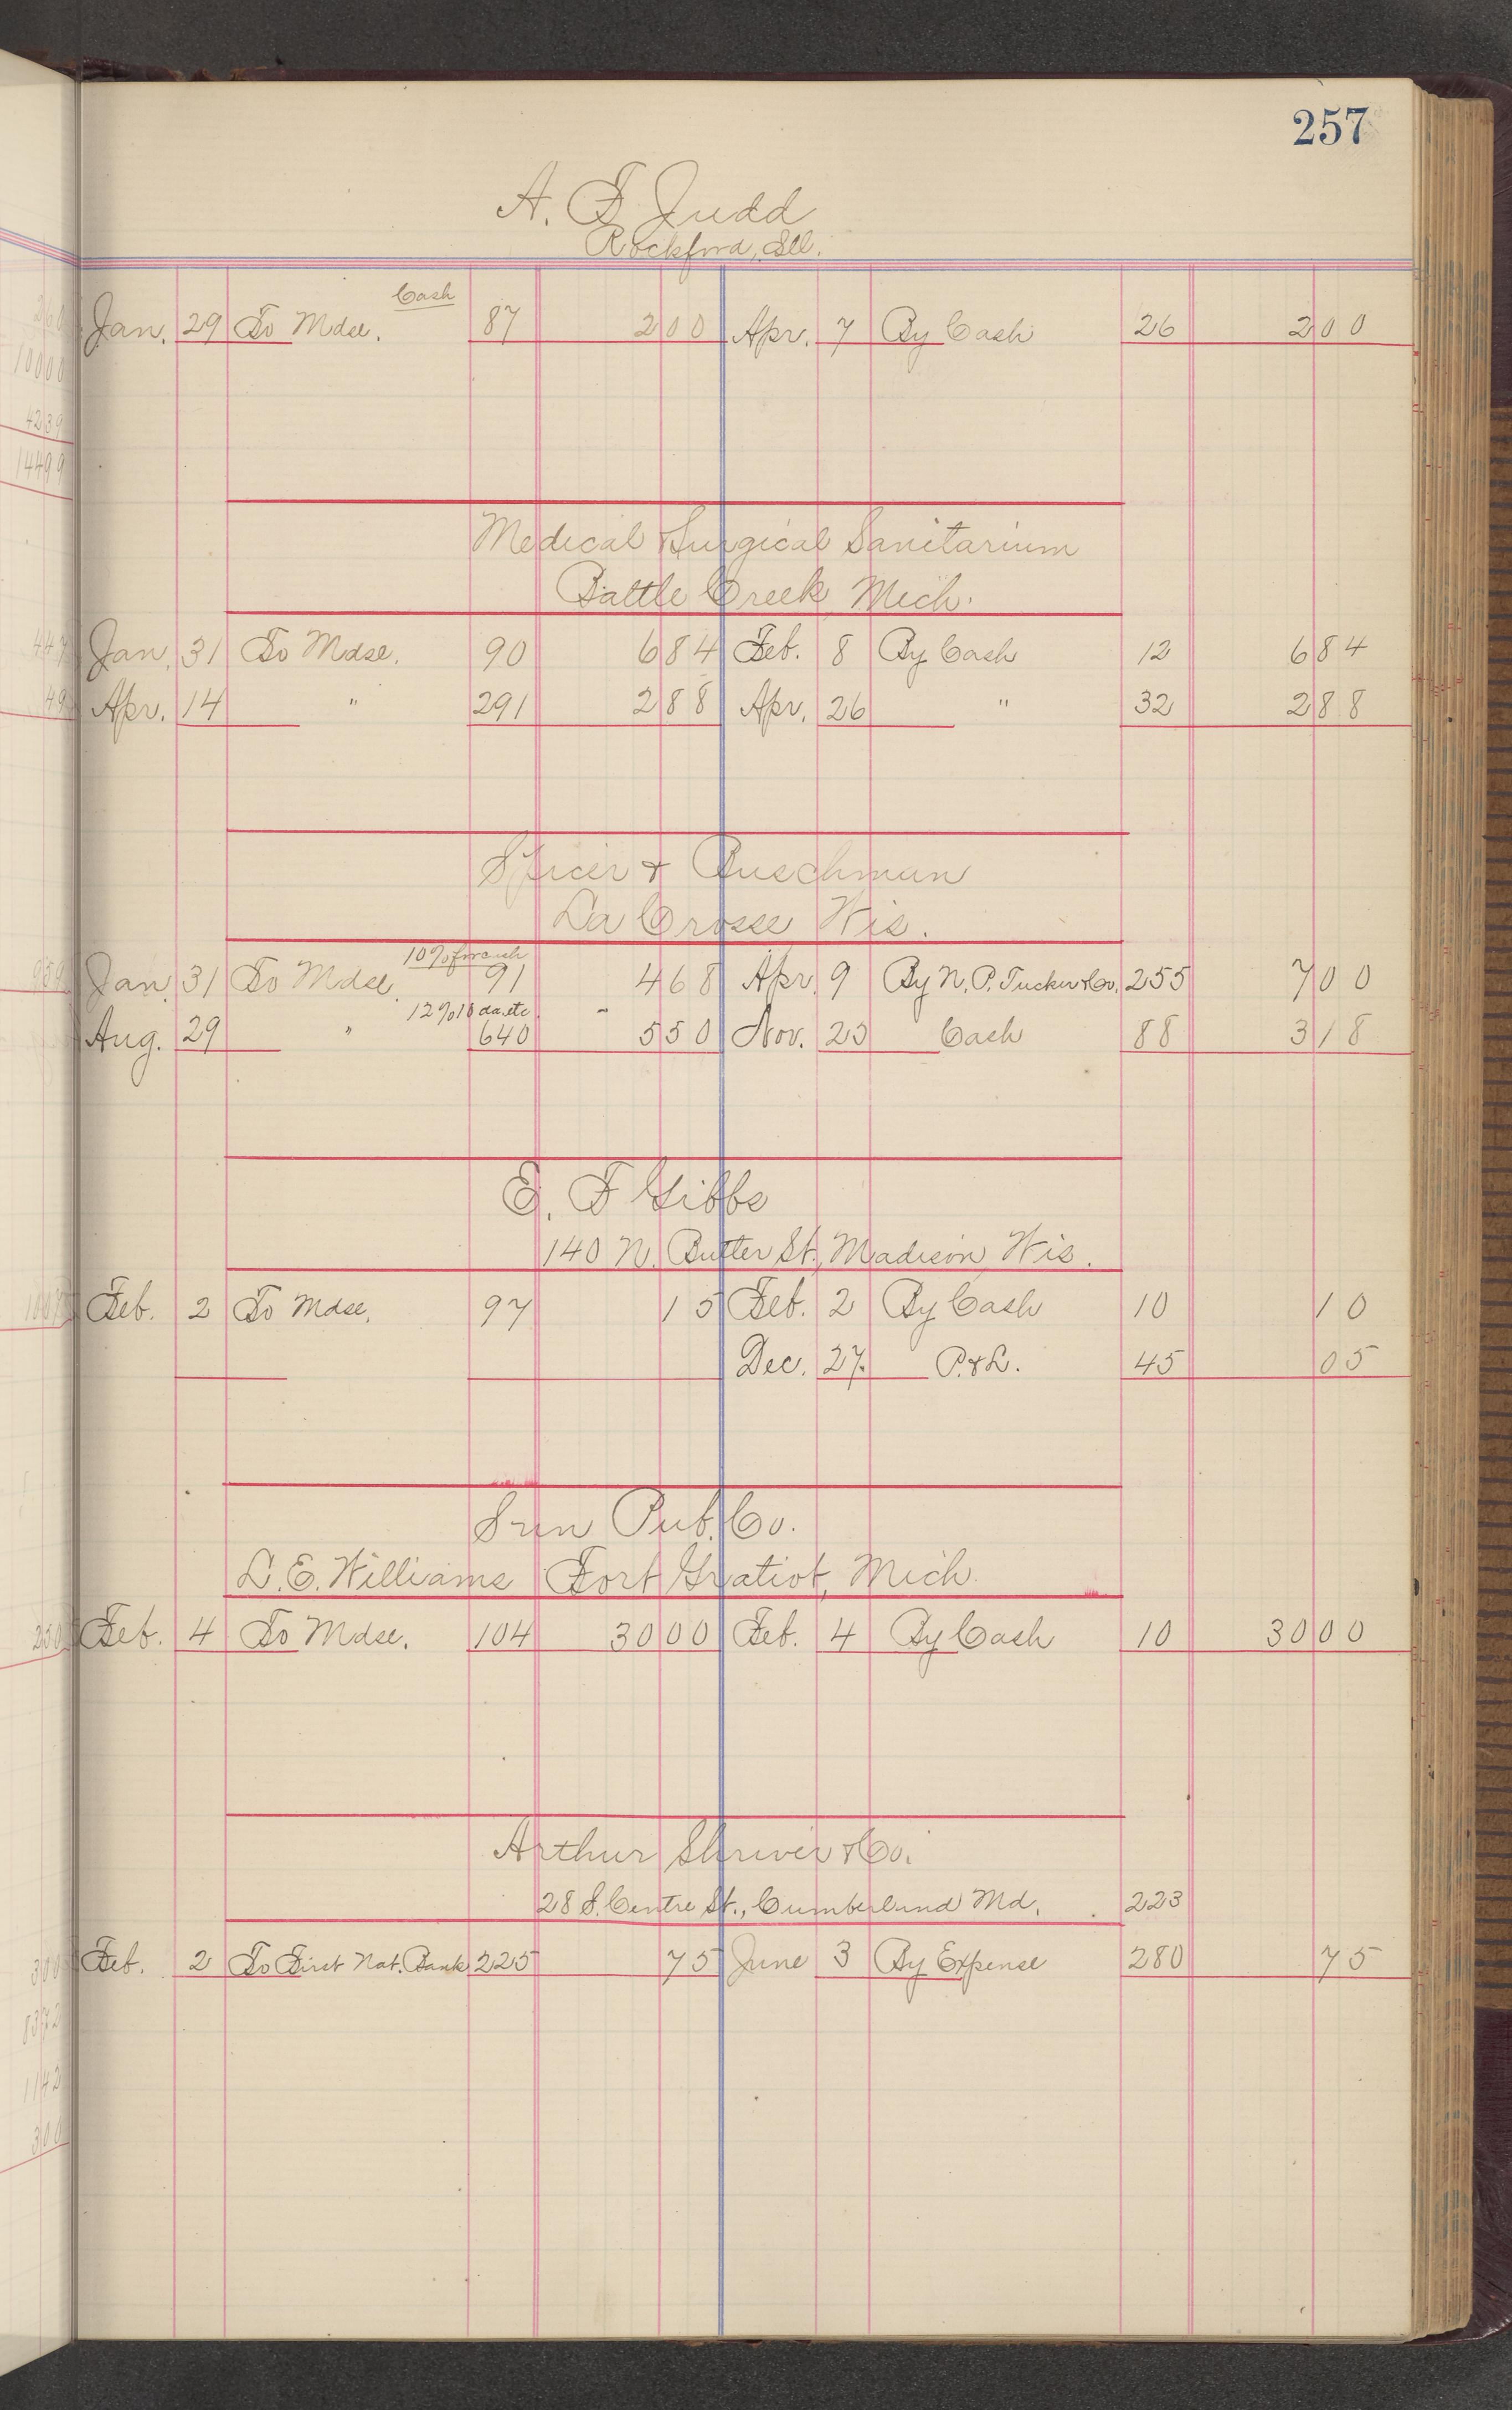 257
A. F Judd
Rockford, Ill.
Cash
Jan. 29 To Mdse. 87 2 00 Apr. 7 By Cash 26 2 00
Medical & Surgical Sanitarium
Battle Creek Mich.
Jan. 31 To Mdse. 90 6 84 Feb. 8 By Cash 12 6 84
Apr. 14 " 291 2 88 Apr. 26 " 32 2 88
Spicer & Buschman
La Crosse Wis.
10% for cash
Jan. 31 To Mdse. 91 4 68 Apr. 9 By N. P. Tucker & Co. 255 7 00
12% 10 da. etc.
Aug. 29 " 640 5 50 Nov. 25 Cash 88 3 18
E. F Gibbs
140 N. Butler St., Madison, Wis.
Feb. 2 To Mdse. 97 15 Feb. 2 By Cash 10 10
Dec. 27. P. & L. 45 05
Sun Pub. Co.
L. E. Williams Fort Gratiot, Mich.
Feb. 4 To Mdse. 104 30 00 Feb. 4 By Cash 10 30 00
Arthur Shriver & Co.
28 S. Centre St., Cumberland Md. 223
Feb. 2 To First Nat. Bank 225 75 June 3 By Expense 280 75